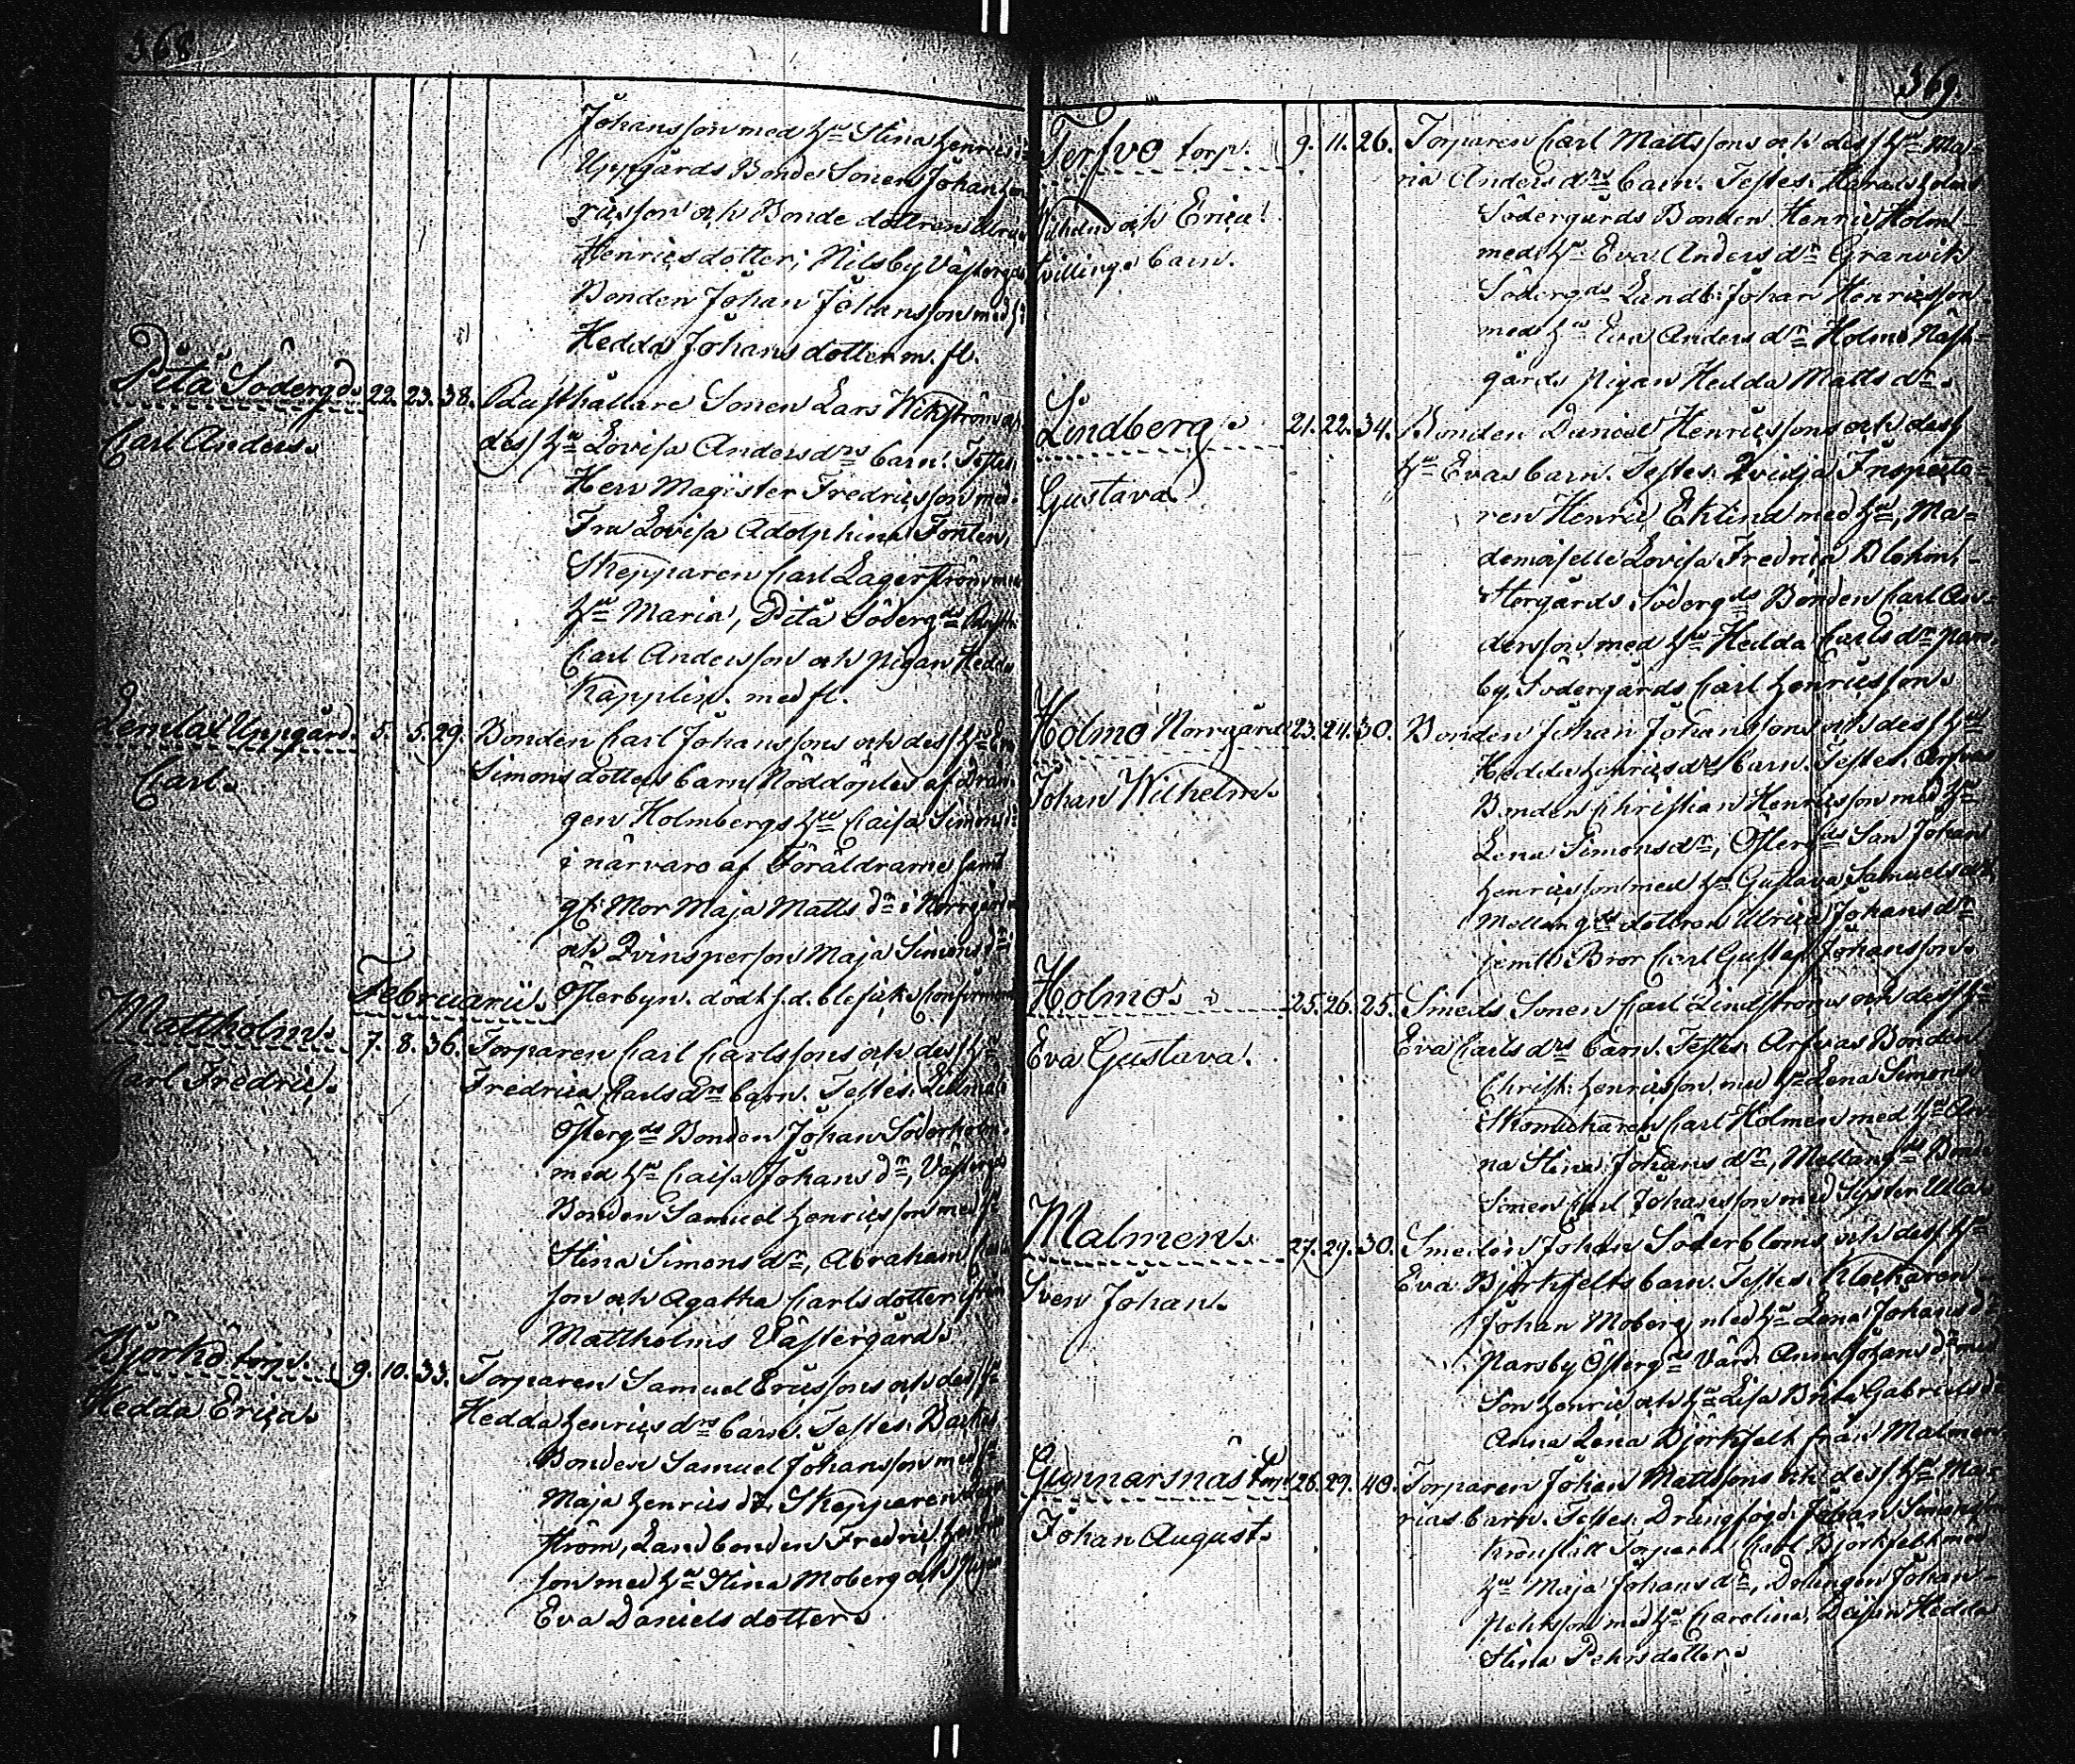 368
Johansson med Hu Stina Henrics
Uppgårds Bonde Sonen Johan
ricsson och Bonde dottren
Henricsdotter; Nilsby Västergds
Bonden Johan Johansson med
Hedda Johansdotter m. fl.
Pitä Södergds 22. 23. 38. Rusthållare Sonen Lars Wikström
Carl Anders. dess Hu Lovisa Andersdrs barn. Testes:
Herr Magister Fredricsson med
Fru Lovisa Adolphina Forten,
Skepparen Carl Lagerström
Hu Maria, Pitä Södergds
Carl Andersson och pigan Hedda
Käpplin. med fl.
Lemlax Uppgård. 5. 5. 29. Bonden Carl Johanssons och dess Hu
Carl. Simonsdotters barn Nöddöptes af Drän-
gen Holmbergs Hu Caisa Simons
i närvaro af Föräldrarne samt
gl: Mor Maja Matts dr i Norrgård
och Qvinsperson Maja Simons dr
Februarii. Österbyn. dödt
Mattholm. 7. 8. 36. Torparen Carl Carlssons och dess Hu
Carl Fredric. Fredrica Carlsdrs barn. Testes:
Östergds Bonden Johan Söderholm
med Hu Caisa Johans dr, Västergds
Bonden Samuel Henricsson med
Stina Simons dr, Abraham
son och Agatha Carlsdotter
Mattholms Västergård.
Björkö torp. 9. 10. 33. Torparen Samuel Ericssons och dess
Hedda Erica. Hedda Henricsdrs barn. Testes:
Bonden Samuel Johansson med
Maja Henrics dr. Skepparen
ström, Landbonden Fredric
son med Hu Stina Moberg och
Eva Danielsdotter.
369.
Terfvo torp. 9. 11. 26. Torparen Carl Mattssons och dess Hu Ma-
ria Andersdrs barn. Testes: Haradsholms
Wilhelm och Erica. Södergårds Bonden Henric Holm
tvillinge barn. med Hu Eva Anders dr Granvik
Södergds Landb: Johan Henricsson
med Hu Eva Anders dr Holmo
gårds pigan Hedda Matts dr.
Lindberg. 21. 22. 34. Bonden Daniel Henricssons och dess
Hu Evas barn. Testes: Qvidja Inspecto-
Gustava. ren Henric Eklind med Hu, Ma-
demoiselle Lovisa Fredrica
Storgårds Södergds Bonden Carl An-
dersson med Hu Hedda Carls dr Pars-
by, Södergårds Carl Henricsson.
Holmo Norrgård 23. 24. 30. Bonden Johan Johanssons och dess Hu
Hedda Henricsdrs barn. Testes: Arfvas
Johan Wilhelm. Bonden Christian Henricsson med Hu
Lena Simonsdr, Östergds Son Johan
Henricsson med Hu Gustava Samuels dr
Mellangds dottren Ulrica Johans dr
jemte Bror Carl Gustaf Johansson.
Holmo. 25. 26. 25. Smeds Sonen Carl Lindströms och dess Hu
Eva Gustava. Eva Carls drs barn. Testes: Arfvas Bonden
Christ: Henricsson med Hu Lena Simonsd
Skomakaren Carl Holmen med Hu An-
na Stina Johans dr, Mellangds Bonde
Sonen Carl Johansson med Syster Ulla.
Malmen. 27. 29. 30. Smeden Johan Söderbloms och dess Hu
Eva Björkfelts barn. Testes: Klockaren
Sven Johan. Johan Moberg med Hu Lena Johans dr
Parsby Östergds Värd. Anna Johans dr med
Son Henric och Hu Lisa Brita Gabriels dr
Anna Lena Björkfelt från Malmen.
Gunnarsnäs torp 28. 29. 40. Torparen Johan Mattssons och dess Hu Ma-
rias barn. Testes: Drängfogd: Johan
Johan August. Torparen Carl Björkfelt med
Hu Maja Johans dr, Drängen Johan
Pehrsson med Hu Carolina, Hedda
Stina Pehrsdotter.